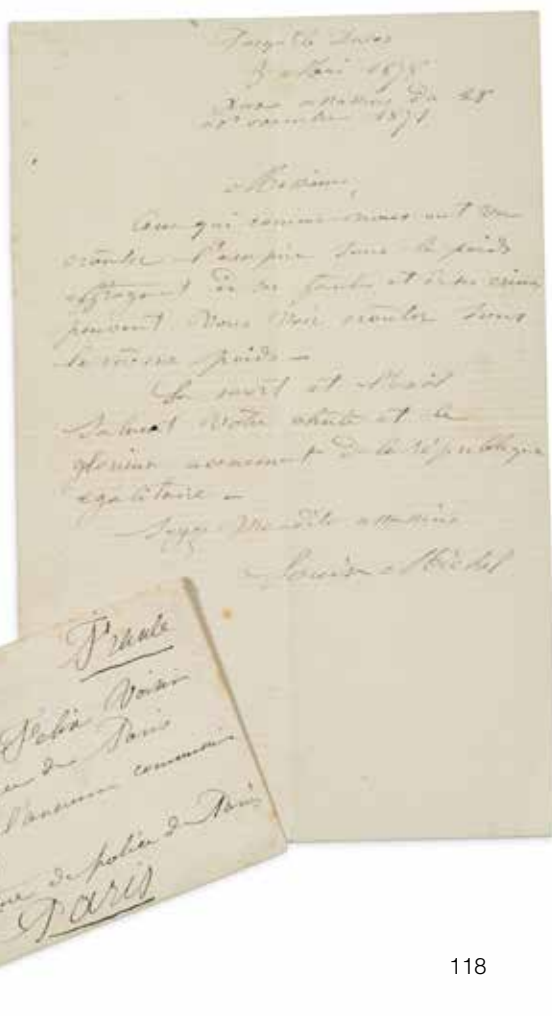 Presqu'île Ducos
3 Mai 1875
Aux assassins du 28
novembre 1871
Messieurs,
Ceux qui comme nous ont vu
crouler l'empire sous le poids
effrayant de ses fautes et de ses crimes
peuvent vous voir crouler sous
le même poids —
La mort et l'exil
saluent votre chute et le
glorieux avènement de la république
égalitaire —
Soyez maudits assassins
Louise Michel
France
Félix Voisin
de Paris
l'ancien
de police de Paris
Paris
118